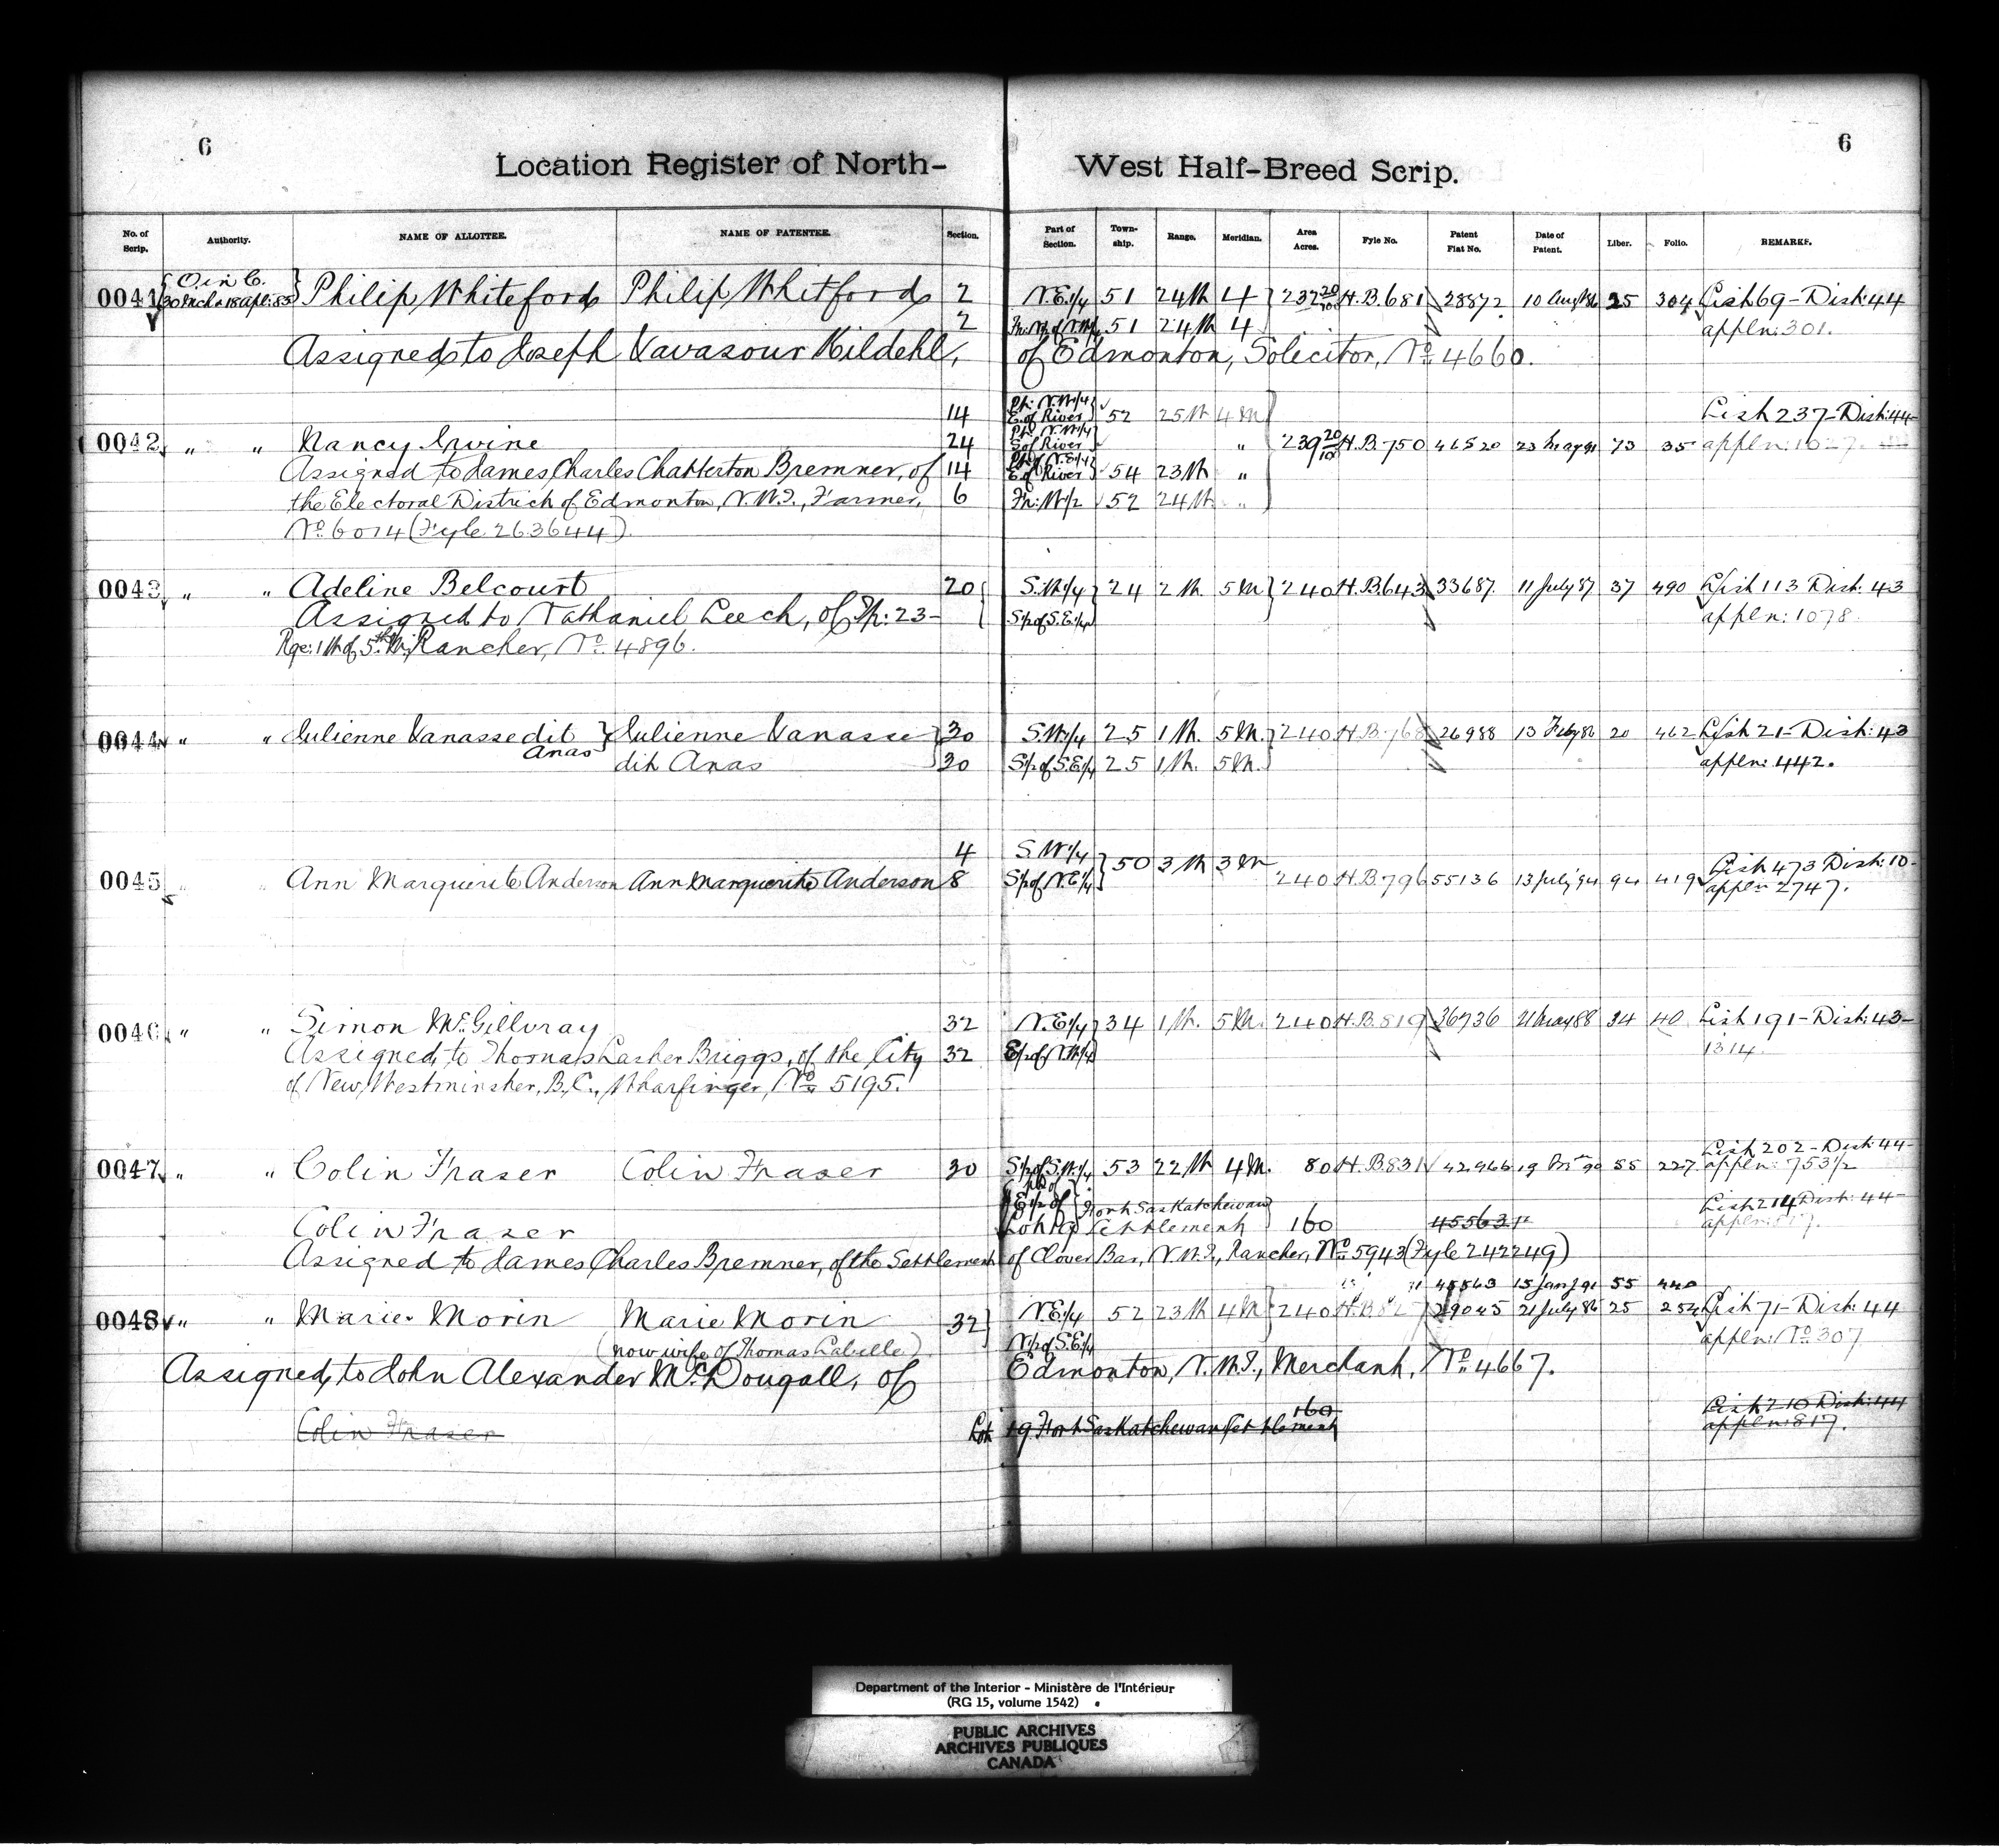 6
6
Location Register of North-West Half-Breed Scrip.
No. of Scrip. Authority. NAME OF ALLOTTEE. NAME OF PATENTEE. Section. Part of Section. Town-ship. Range. Meridian. Area Acres. Fyle No. Patent Fiat No. Date of Patent. Liber. Folio. REMARKS.
O. in C.
0041 30 Mch & 18 Apl: 85 Philip Whiteford Philip Whitford 2 N.E.1/4 51 24 W 4 232 20/100 H.B. 681 28872 10 Aug 86 25 304 List 69 - Dist: 44
2 Fr: N1/2 of N.W1/4 51 24 W 4 appln: 301.
Assigned to Joseph Vavasour Kildahl, of Edmonton, Solicitor, No. 4660.
14 Pt: N.W.1/4 E. of River 52 25 W 4 M List 237 - Dist: 44
0042 " " Nancy Irvine 24 Pt: N.W1/4 S. of River " 239 20/10 H.B. 750 46520 23 May 91 73 35 appln: 1027.
Assigned to James Charles Chatterton Bremner, of 14 Pt: N.E1/4 E. of River 54 23 W "
the Electoral District of Edmonton, N.W.T., Farmer, 6 Fr: W1/2 52 24 W "
No. 6014 (Fyle 263644)
0043 " " Adeline Belcourt 20 S.W.1/4 24 2 W 5 M 240 H.B. 643 33687. 11 July 87 37 490 List 113 Dist: 43
Assigned to Nathaniel Leech, of Tp: 23- S1/2 of S.E.1/4 appln: 1078.
Rge: 1 W of 5th M; Rancher, No. 4896.
0044 " " Julienne Vanasse dit Julienne Vanasse 30 S.W.1/4 25 1 W. 5 M. 240 H.B. 768 26988 13 Feby 86 20 462 List 21 - Dist: 43
Anas dit Anas 30 S1/2 of S.E1/4 25 1 W. 5 M. appln: 442.
4 S.W.1/4
0045 " " Ann Marguerite Anderson Ann Marguerite Anderson 8 S1/2 of N.E1/4 50 3 W 3 M 240 H.B. 796 55136 13 July 94 94 419 List 473 Dist: 10-
appln 2747.
0046 " " Simon McGillvray 32 N.E1/4 34 1 W. 5 M. 240 H.B. 819 36736 21 May 88 34 40 List 191 - Dist: 43-
Assigned to Thomas Lasher Briggs, of the City 32 E1/2 of N.W1/4 1314.
of New Westminster, B.C., Wharfinger, No. 5195.
0047 " " Colin Fraser Colin Fraser 30 S1/2 of S.W.1/4 53 22 W 4 M. 80 H.B. 831 42966 90 55 227 List 202 - Dist: 44-
appln: 753 1/2
E1/2 of Fort Saskatchewan List 214 Dist: 44-
Colin Fraser Lot 19 Settlement 160 45563
Assigned to James Charles Bremner, of the Settlement of Clover Bar, N.W.T., Rancher, No. 5943 (Fyle 242249)
45563 15 Jany 91 55 440
0048 " " Marie Morin Marie Morin 32 N.E1/4 52 23 W 4 M 240 H.B. 827 29045 21 July 86 25 254 List 71 - Dist: 44
(now wife of Thomas Labelle) N1/2 of S.E1/4 appln: No. 307
Assigned to John Alexander McDougall, of Edmonton, N.W.T., Merchant, No. 4667.
Colin Fraser Lot 19 Fort Saskatchewan Settlement 160 List 210 Dist: 44
appln: 817.
Department of the Interior - Ministère de l'Intérieur
(RG 15, volume 1542)
PUBLIC ARCHIVES
ARCHIVES PUBLIQUES
CANADA